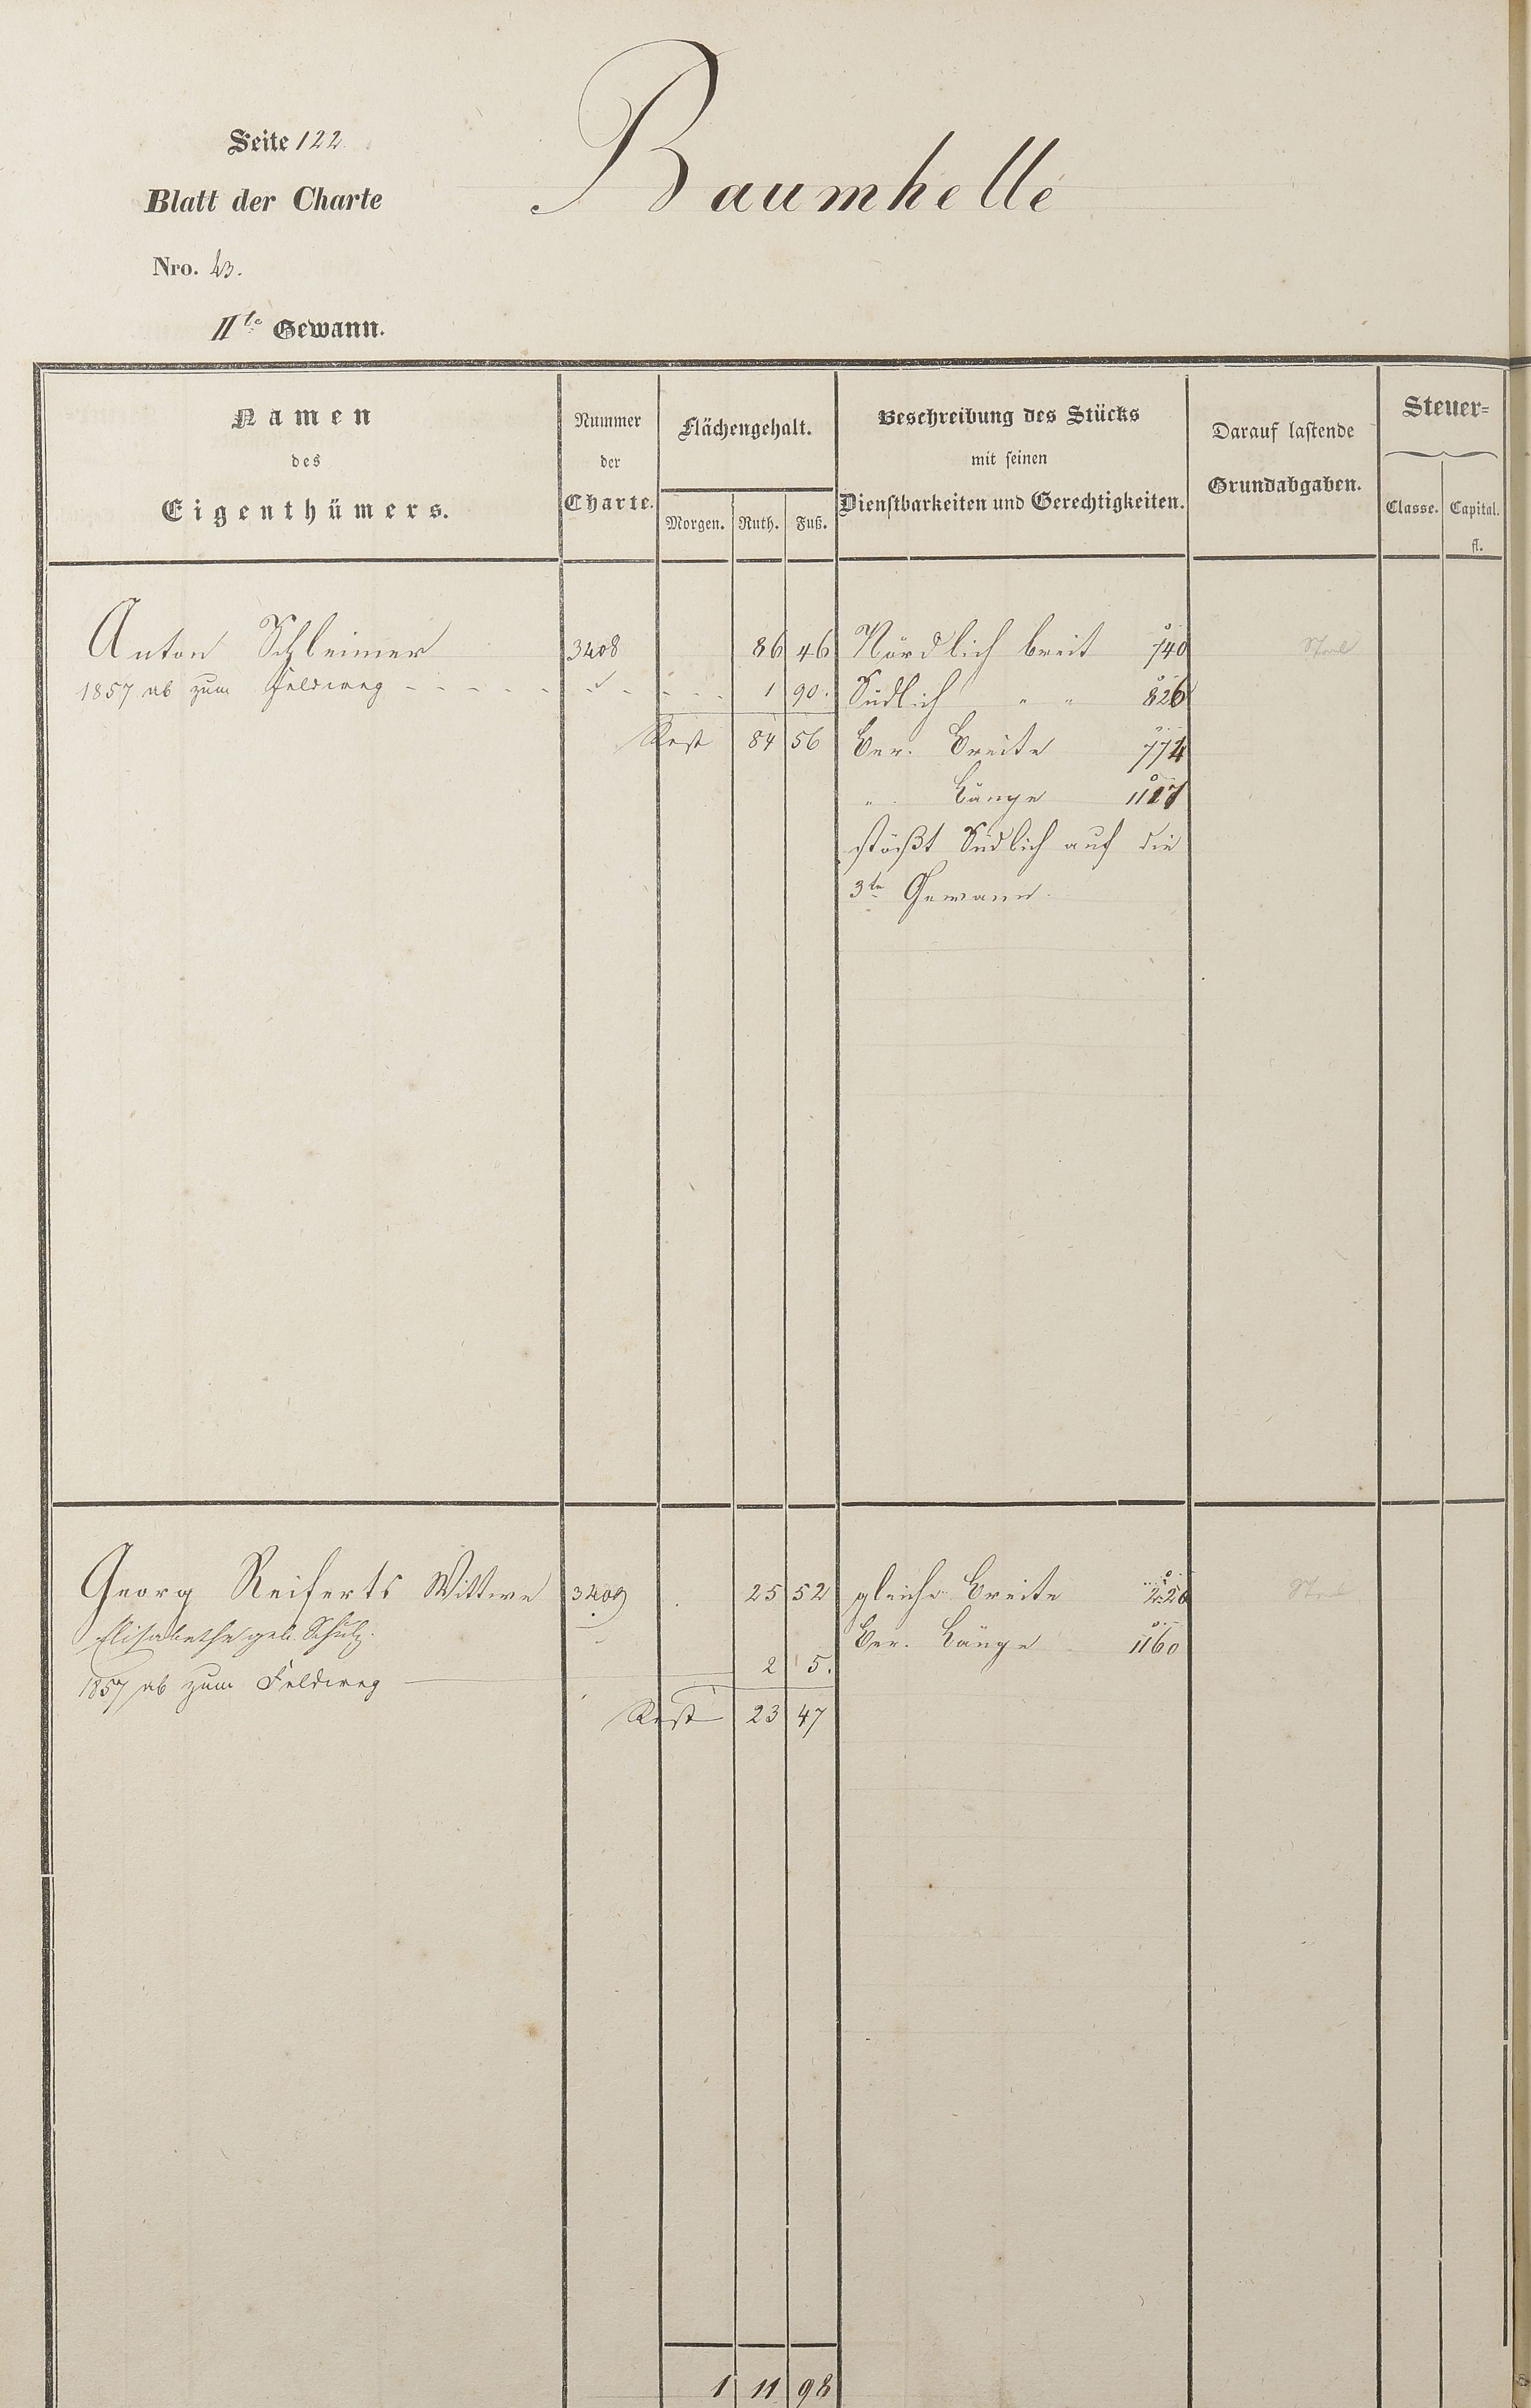 Seite 122
Baumhelle
Blatt der Charte
Nro. 43.
IIte Gewann.
Namen des Eigenthümers.
Nummer der Charte.
Flächengehalt.
Morgen. Ruth. Fuß.
Beschreibung des Stücks mit seinen Dienstbarkeiten und Gerechtigkeiten.
Darauf lastende Grundabgaben.
Steuer=
Classe. Capital. fl.
Anton Schleimer 3408 86 46 Nördlich breit 740
1857 ab zum Feldweg 1 90. Südlich " " 826
Rest 84 56 Ber. Breite 774
" Länge 1117
stößt Südlich auf die
3te Gewann.
Georg Reiferts Wittwe 3409 25 52 gleiche Breite 220
Elisabetha geb. Schulz. Ber. Länge 1160
1857 ab zum Feldweg 2 5.
Rest 23 47
1 11 98